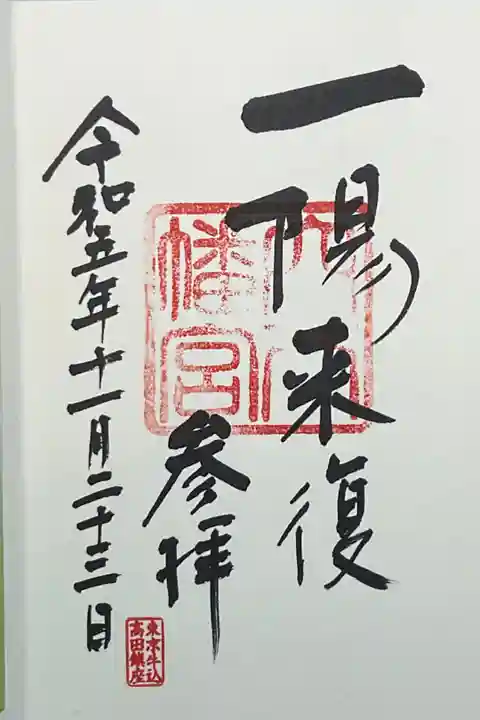 一陽来復
参拝
令和五年十一月二十三日
穴八幡宮
東京牛込
高田鎮座